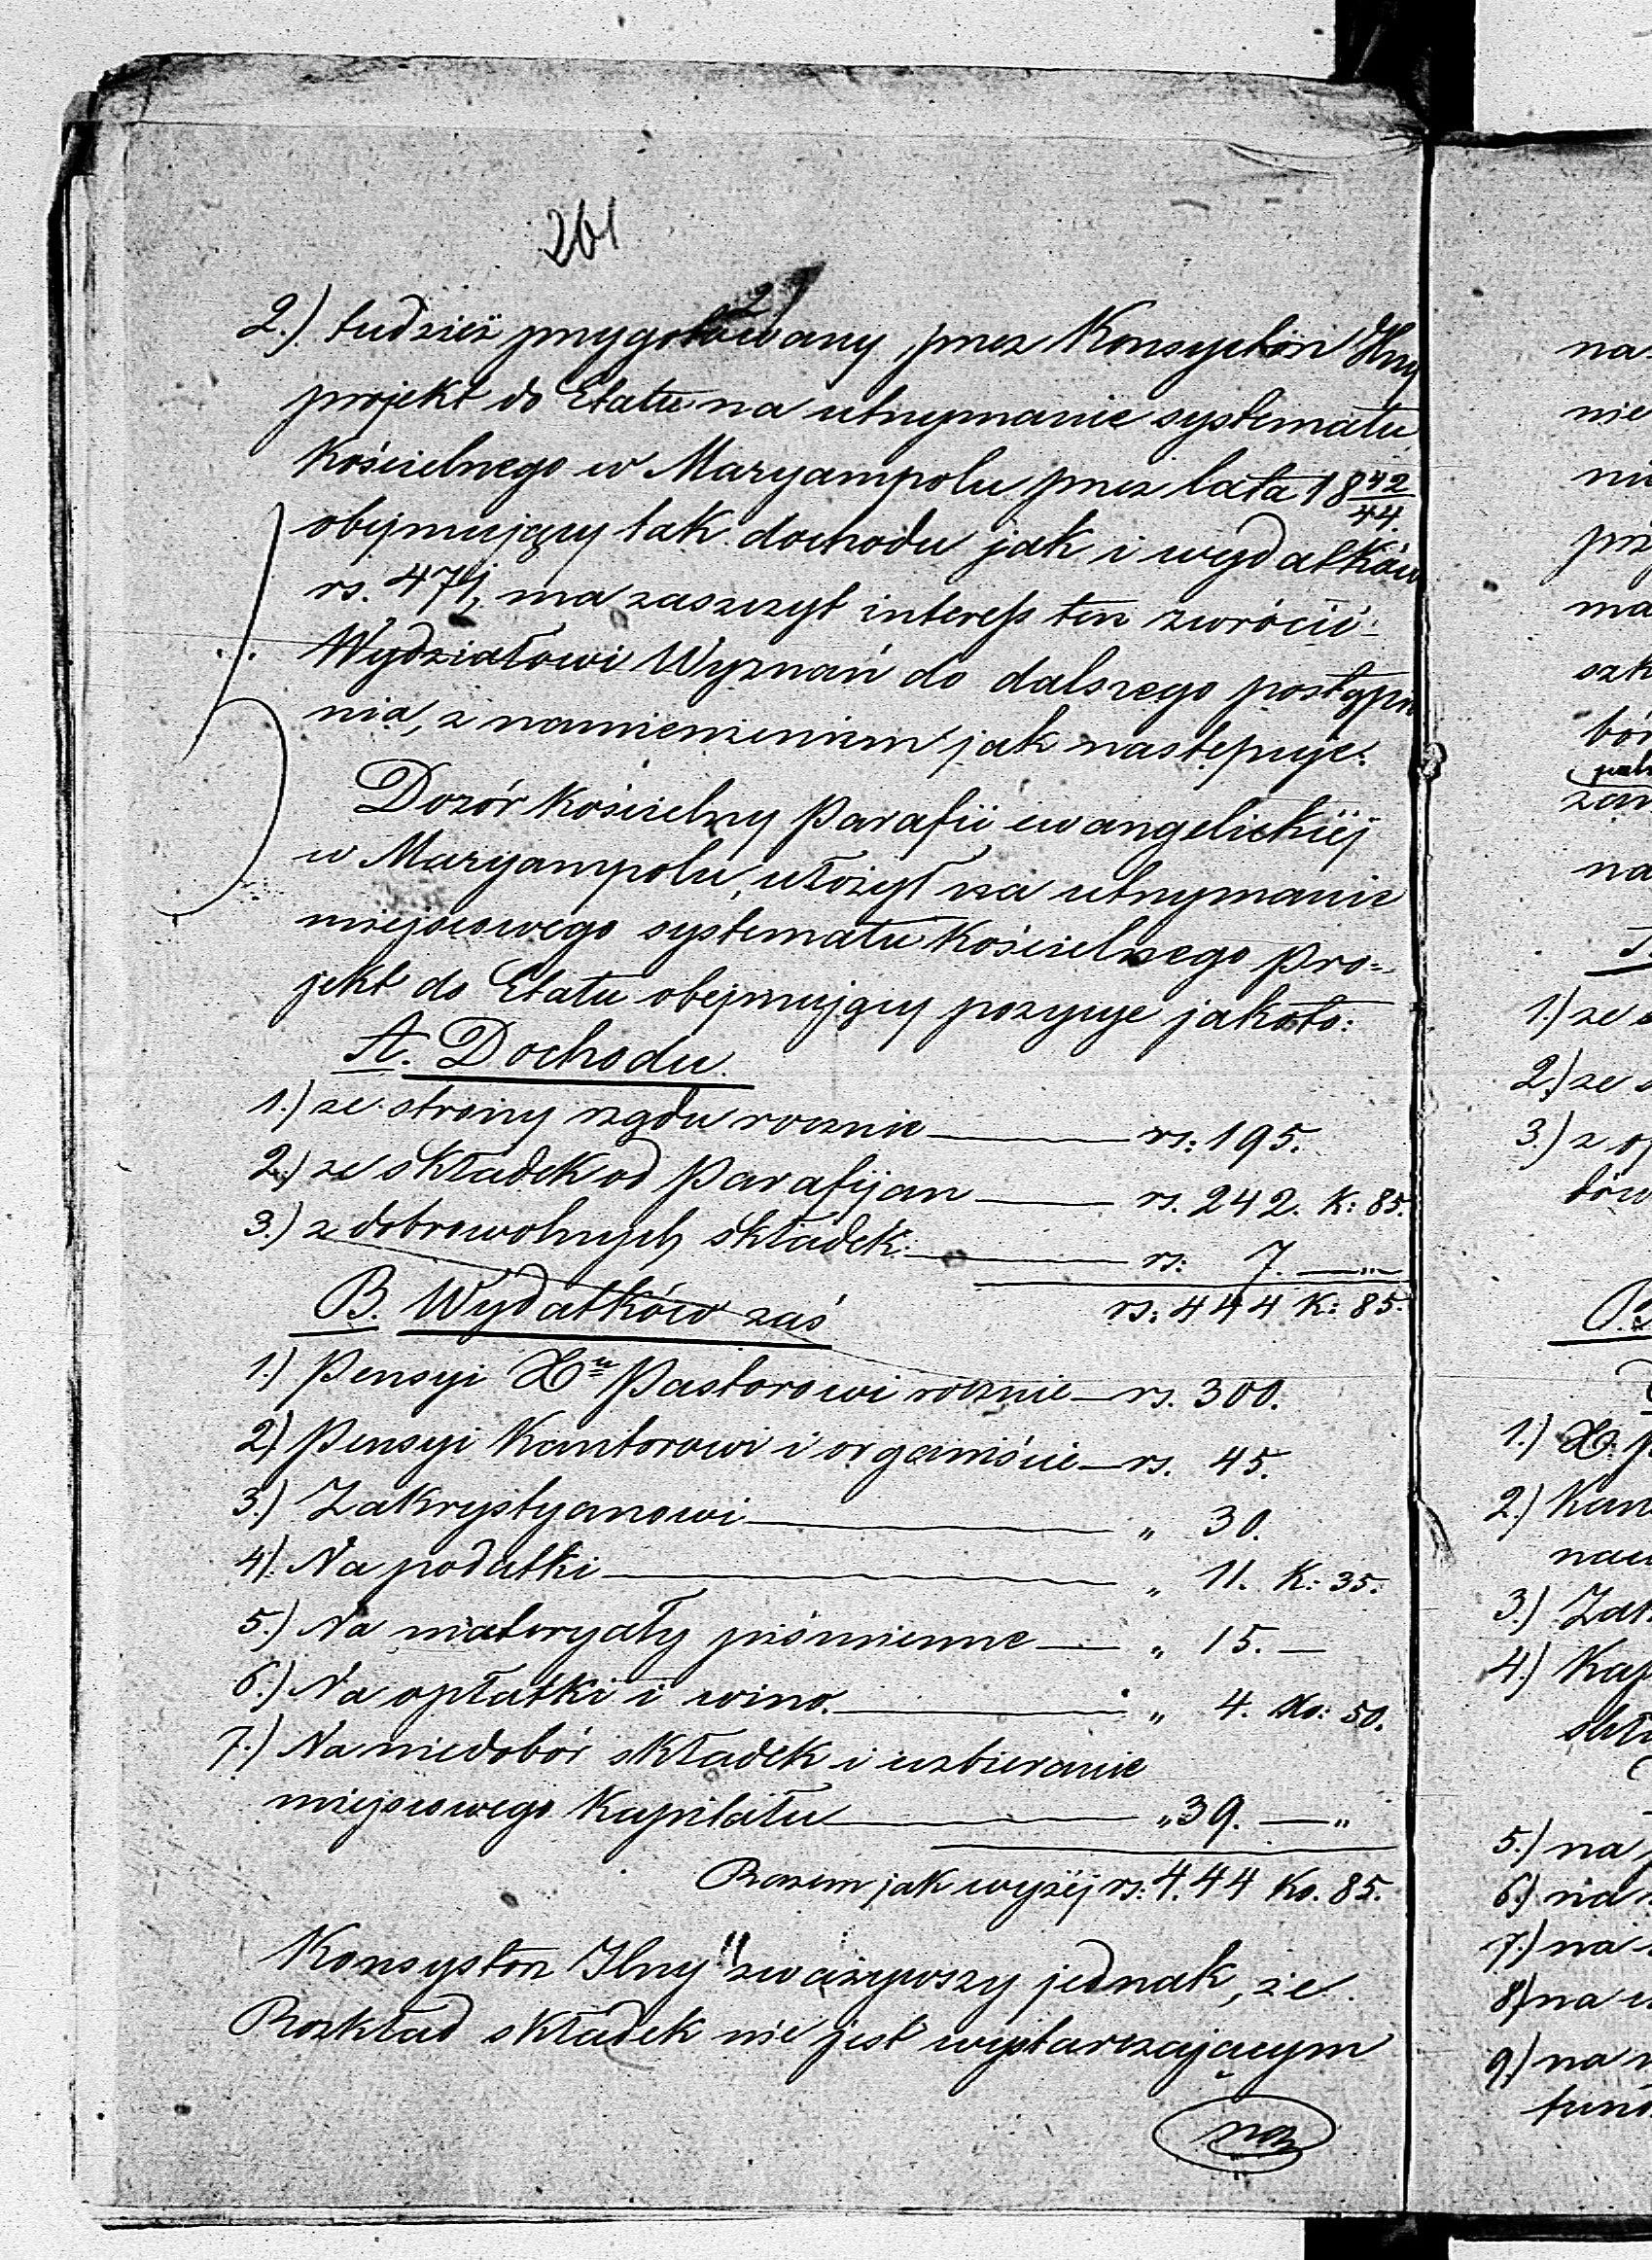 261
2.) tudzież przygotowany przez Konsystorz Jlny
projekt do Etatu na utrzymanie systematu
Kościelnego w Maryampolu przez lata 18 42/44.
obejmujący tak dochodu jak i wydatków
rs. 471, ma zaszczyt interess ten zwrócić
Wydziałowi Wyznań do dalszego postępo
nia, z namienieniem jak następuje:
Dozór Kościelny Parafii ewangelickiéj
w Maryampolu, ułożył na utrzymanie
miejscowego systematu Kościelnego pro=
jekt do Etatu obejmujący pozycye jakoto:
A. Dochodu.
1.) ze strony rządu rocznie — rs: 195.
2.) ze składek od Parafijan — rs. 242. K: 85.
3.) z dobrowolnych składek — rs: 7. — "
rs: 444 K: 85.
B. Wydatków zaś
1.) Pensyi Xu Pastorowi rocznie — rs. 300.
2) Pensyi Kantorowi i organiście — rs. 45.
3.) Zakrystyanowi — " 30.
4). Na podatki — " 11. K: 35.
5.) Na materyały piśmienne — " 15. —
6.) Na opłatki i wino. — " 4. Ko: 50.
7.) Na niedobór składek i uzbieranie
miejscowego Kapitału — " 39. — "
Razem jak wyżéj rs: 444 Ko. 85.
Konsystorz Jlny zważywszy jednak, że
Rozkład składek nie jest wystarczającym
na
na
nie
ma
na
1.) ze
2.) ze
3.) z
1.) X.
2.)
3.) Zak
4.) Kap
5.) na
6.) na
7.) na
8) na
9.) na